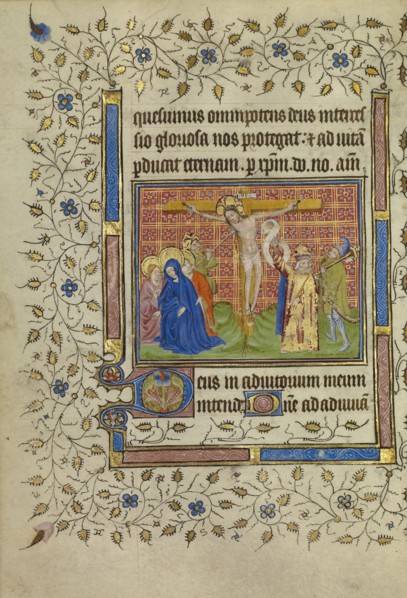 quesumus omnipotens deus interces
sio gloriosa nos protegat: ⁊ ad uitā
ꝑducat eternam. ꝑ xp̄m. dn̄. no. am̄.
Deus in adiutorium meum
intende. Dn̄e ad adiuuā